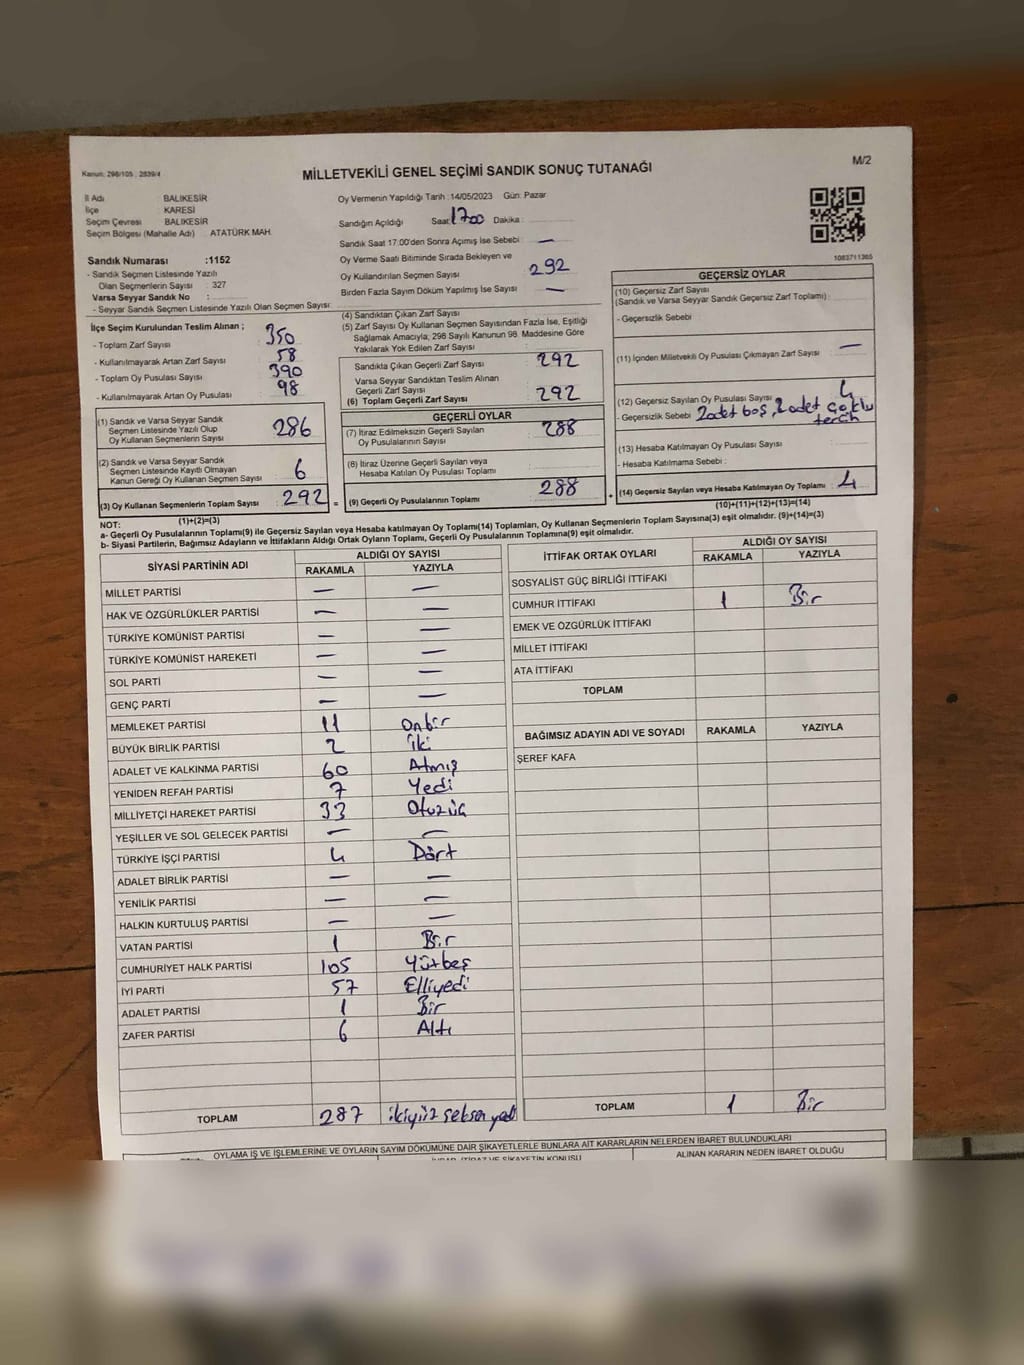 Kanun: 298/105 ; 2839/4
MİLLETVEKİLİ GENEL SEÇİMİ SANDIK SONUÇ TUTANAĞI
M/2
İl Adı BALIKESİR
İlçe KARESİ
Seçim Çevresi BALIKESİR
Seçim Bölgesi (Mahalle Adı) ATATÜRK MAH.
Sandık Numarası :1152
- Sandık Seçmen Listesinde Yazılı
Olan Seçmenlerin Sayısı : 327
Varsa Seyyar Sandık No :
- Seyyar Sandık Seçmen Listesinde Yazılı Olan Seçmen Sayısı:
Oy Vermenin Yapıldığı Tarih :14/05/2023 Gün: Pazar
Sandığın Açıldığı Saat: 1700 Dakika :
Sandık Saat 17.00'den Sonra Açımış İse Sebebi : —
Oy Verme Saati Bitiminde Sırada Bekleyen ve
Oy Kullandırılan Seçmen Sayısı 292
Birden Fazla Sayım Döküm Yapılmış İse Sayısı —
1083711365
İlçe Seçim Kurulundan Teslim Alınan ;
- Toplam Zarf Sayısı 350
- Kullanılmayarak Artan Zarf Sayısı 58
- Toplam Oy Pusulası Sayısı 390
- Kullanılmayarak Artan Oy Pusulası 98
(1) Sandık ve Varsa Seyyar Sandık
Seçmen Listesinde Yazılı Olup
Oy Kullanan Seçmenlerin Sayısı 286
(2) Sandık ve Varsa Seyyar Sandık
Seçmen Listesinde Kayıtlı Olmayan
Kanun Gereği Oy Kullanan Seçmen Sayısı 6
(3) Oy Kullanan Seçmenlerin Toplam Sayısı 292 =
(1)+(2)=(3)
(4) Sandıktan Çıkan Zarf Sayısı
(5) Zarf Sayısı Oy Kullanan Seçmen Sayısından Fazla İse, Eşitliği
Sağlamak Amacıyla, 298 Sayılı Kanunun 98. Maddesine Göre
Yakılarak Yok Edilen Zarf Sayısı
Sandıkta Çıkan Geçerli Zarf Sayısı 292
Varsa Seyyar Sandıktan Teslim Alınan
Geçerli Zarf Sayısı
(6) Toplam Geçerli Zarf Sayısı 292
GEÇERLİ OYLAR
(7) İtiraz Edilmeksizin Geçerli Sayılan
Oy Pusulalarının Sayısı 288
(8) İtiraz Üzerine Geçerli Sayılan veya
Hesaba Katılan Oy Pusulası Toplamı
(9) Geçerli Oy Pusulalarının Toplamı 288 +
GEÇERSİZ OYLAR
(10) Geçersiz Zarf Sayısı
(Sandık ve Varsa Seyyar Sandık Geçersiz Zarf Toplamı) :
- Geçersizlik Sebebi :
(11) İçinden Milletvekili Oy Pusulası Çıkmayan Zarf Sayısı —
(12) Geçersiz Sayılan Oy Pusulası Sayısı 4
- Geçersizlik Sebebi : 2 adet boş, 2 adet çoklu
tercih
(13) Hesaba Katılmayan Oy Pusulası Sayısı
- Hesaba Katılmama Sebebi :
(14) Geçersiz Sayılan veya Hesaba Katılmayan Oy Toplamı : 4
(10)+(11)+(12)+(13)=(14)
NOT:
a- Geçerli Oy Pusulalarının Toplamı(9) ile Geçersiz Sayılan veya Hesaba katılmayan Oy Toplamı(14) Toplamları, Oy Kullanan Seçmenlerin Toplam Sayısına(3) eşit olmalıdır. (9)+(14)=(3)
b- Siyasi Partilerin, Bağımsız Adayların ve İttifakların Aldığı Ortak Oyların Toplamı, Geçerli Oy Pusulalarının Toplamına(9) eşit olmalıdır.
SİYASİ PARTİNİN ADI ALDIĞI OY SAYISI
RAKAMLA YAZIYLA
MİLLET PARTİSİ — —
HAK VE ÖZGÜRLÜKLER PARTİSİ — —
TÜRKİYE KOMÜNİST PARTİSİ — —
TÜRKİYE KOMÜNİST HAREKETİ — —
SOL PARTİ — —
GENÇ PARTİ — —
MEMLEKET PARTİSİ 11 Onbir
BÜYÜK BİRLİK PARTİSİ 2 İki
ADALET VE KALKINMA PARTİSİ 60 Atmış
YENİDEN REFAH PARTİSİ 7 Yedi
MİLLİYETÇİ HAREKET PARTİSİ 33 Otuzüç
YEŞİLLER VE SOL GELECEK PARTİSİ — —
TÜRKİYE İŞÇİ PARTİSİ 4 Dört
ADALET BİRLİK PARTİSİ — —
YENİLİK PARTİSİ — —
HALKIN KURTULUŞ PARTİSİ — —
VATAN PARTİSİ 1 Bir
CUMHURİYET HALK PARTİSİ 105 Yüzbeş
İYİ PARTİ 57 Elliyedi
ADALET PARTİSİ 1 Bir
ZAFER PARTİSİ 6 Altı
TOPLAM 287 ikiyüz seksen yedi
İTTİFAK ORTAK OYLARI ALDIĞI OY SAYISI
RAKAMLA YAZIYLA
SOSYALİST GÜÇ BİRLİĞİ İTTİFAKI
CUMHUR İTTİFAKI 1 Bir
EMEK VE ÖZGÜRLÜK İTTİFAKI
MİLLET İTTİFAKI
ATA İTTİFAKI
TOPLAM
BAĞIMSIZ ADAYIN ADI VE SOYADI RAKAMLA YAZIYLA
ŞEREF KAFA
TOPLAM 1 Bir
OYLAMA İŞ VE İŞLEMLERİNE VE OYLARIN SAYIM DÖKÜMÜNE DAİR ŞİKAYETLERLE BUNLARA AİT KARARLARIN NELERDEN İBARET BULUNDUKLARI
İHBAR, İTİRAZ VE ŞİKAYETİN KONUSU ALINAN KARARIN NEDEN İBARET OLDUĞU